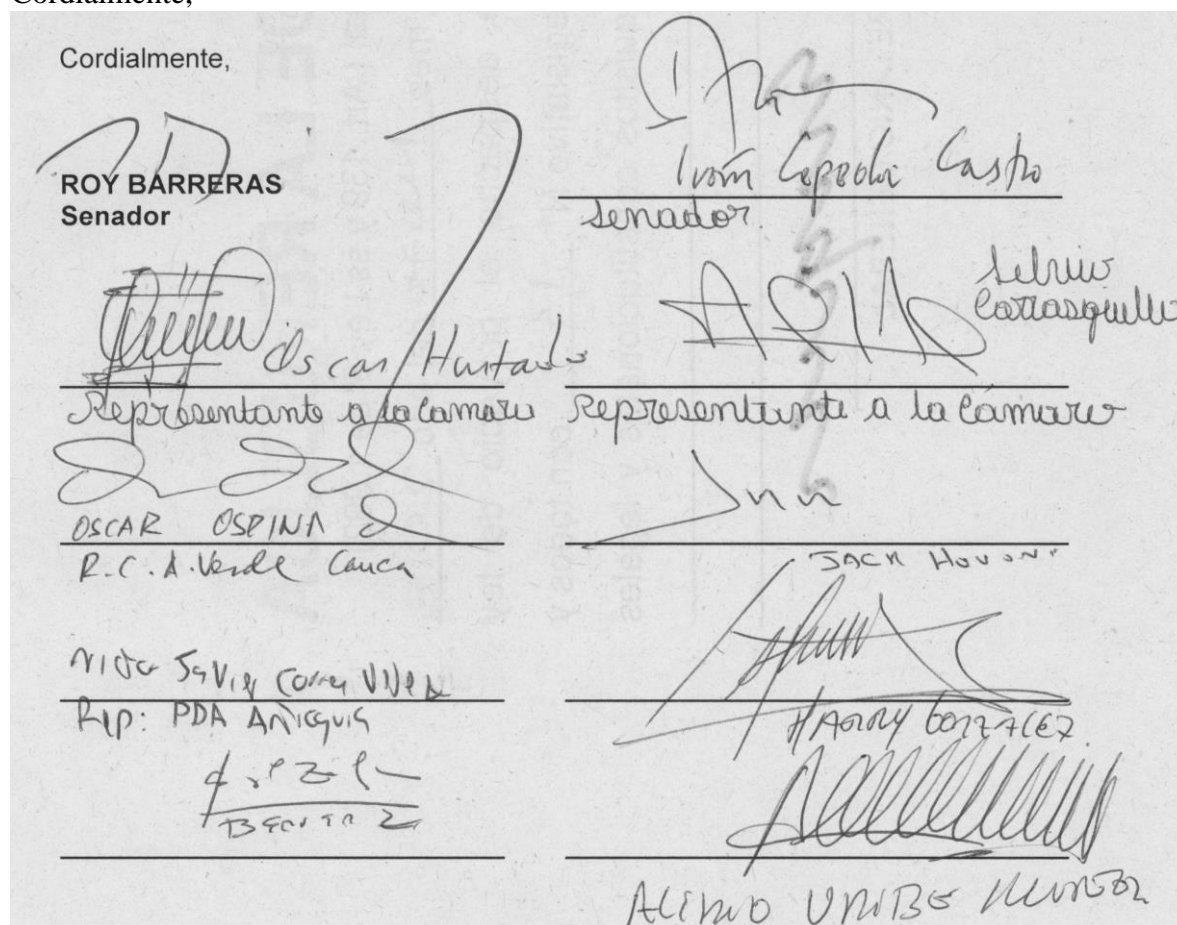 Cordialmente,
Cordialmente,
ROY BARRERAS
Senador
Iván Cepeda Castro
Senador
Oscar Hurtado
Representante a la Cámara
Silvio
Carrasquilla
Representante a la Cámara
OSCAR OSPINA
R.C. A. Verde Cauca
JACK HOUSNI
Victor Javier Correa Vélez
Rep: PDA Antioquia
HARRY GONZALEZ
ALIRIO URIBE MUÑOZ